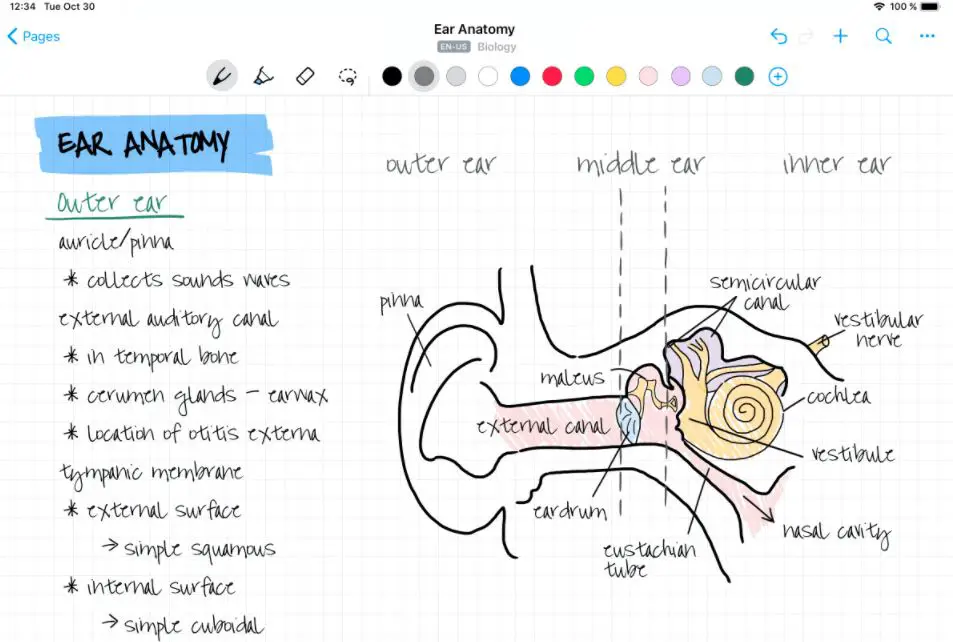 12:34 Tue Oct 30
100 %
Pages
Ear Anatomy
EN-US Biology
EAR ANATOMY
outer ear
auricle/pinna
* collects sounds waves
external auditory canal
* in temporal bone
* cerumen glands – earwax
* location of otitis externa
tympanic membrane
* external surface
→ simple squamous
* internal surface
→ simple cuboidal
outer ear
middle ear
inner ear
pinna
semicircular
canal
vestibular
nerve
maleus
cochlea
external canal
vestibule
eardrum
eustachian
tube
nasal cavity